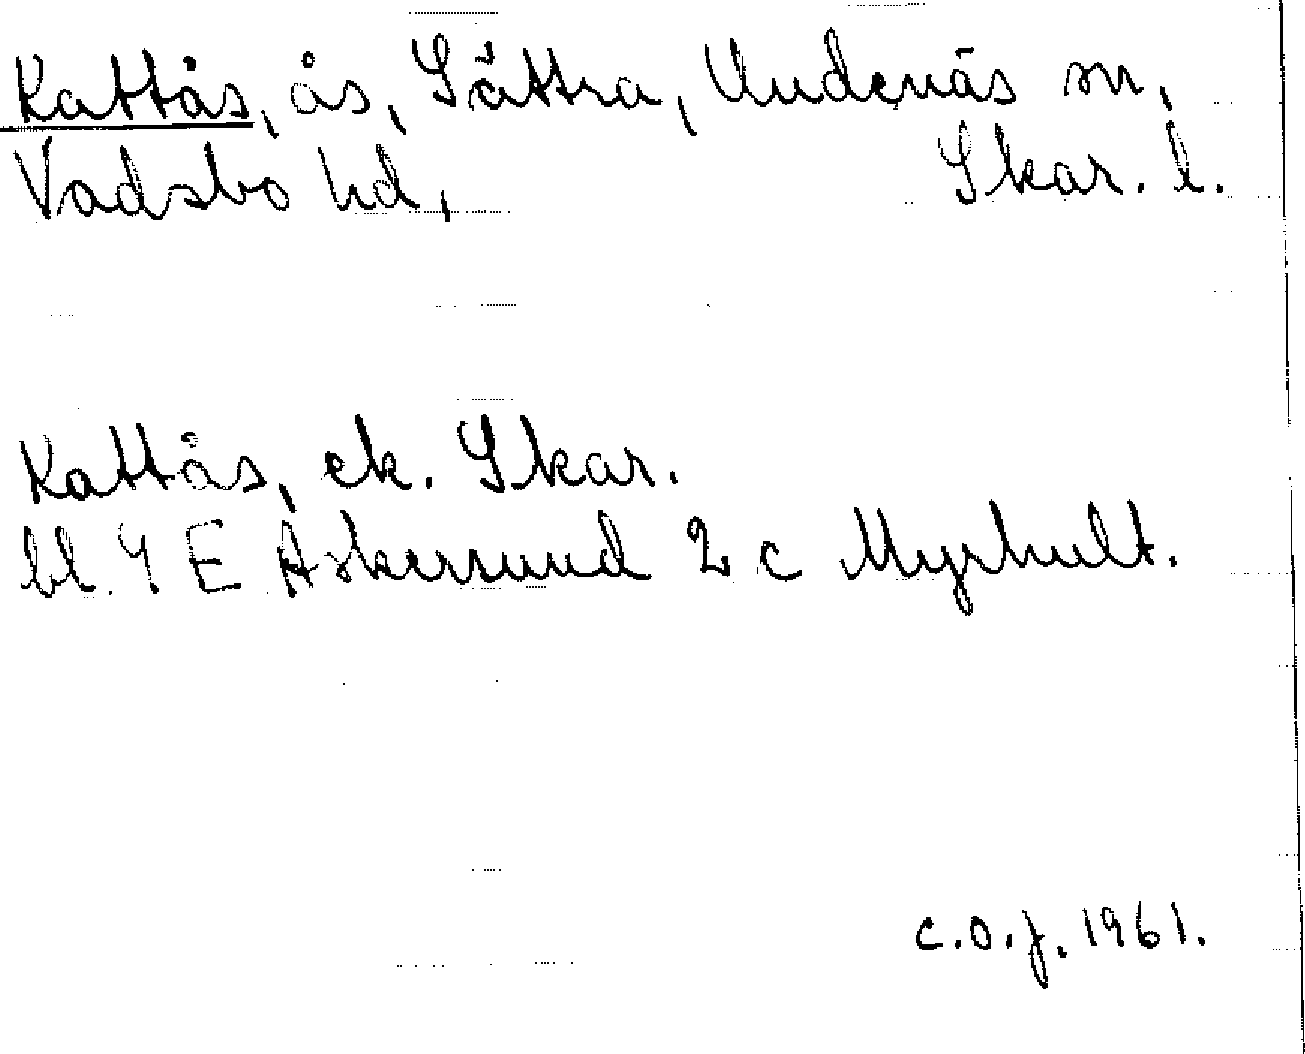 Kattås, ås, Sättra, Undenäs sn,
Vadsbo hd, Skar. l.
Kattås, ek. Skar.
bl. 4 E Askersund 2 c Myrhult.
C.O.J. 1961.